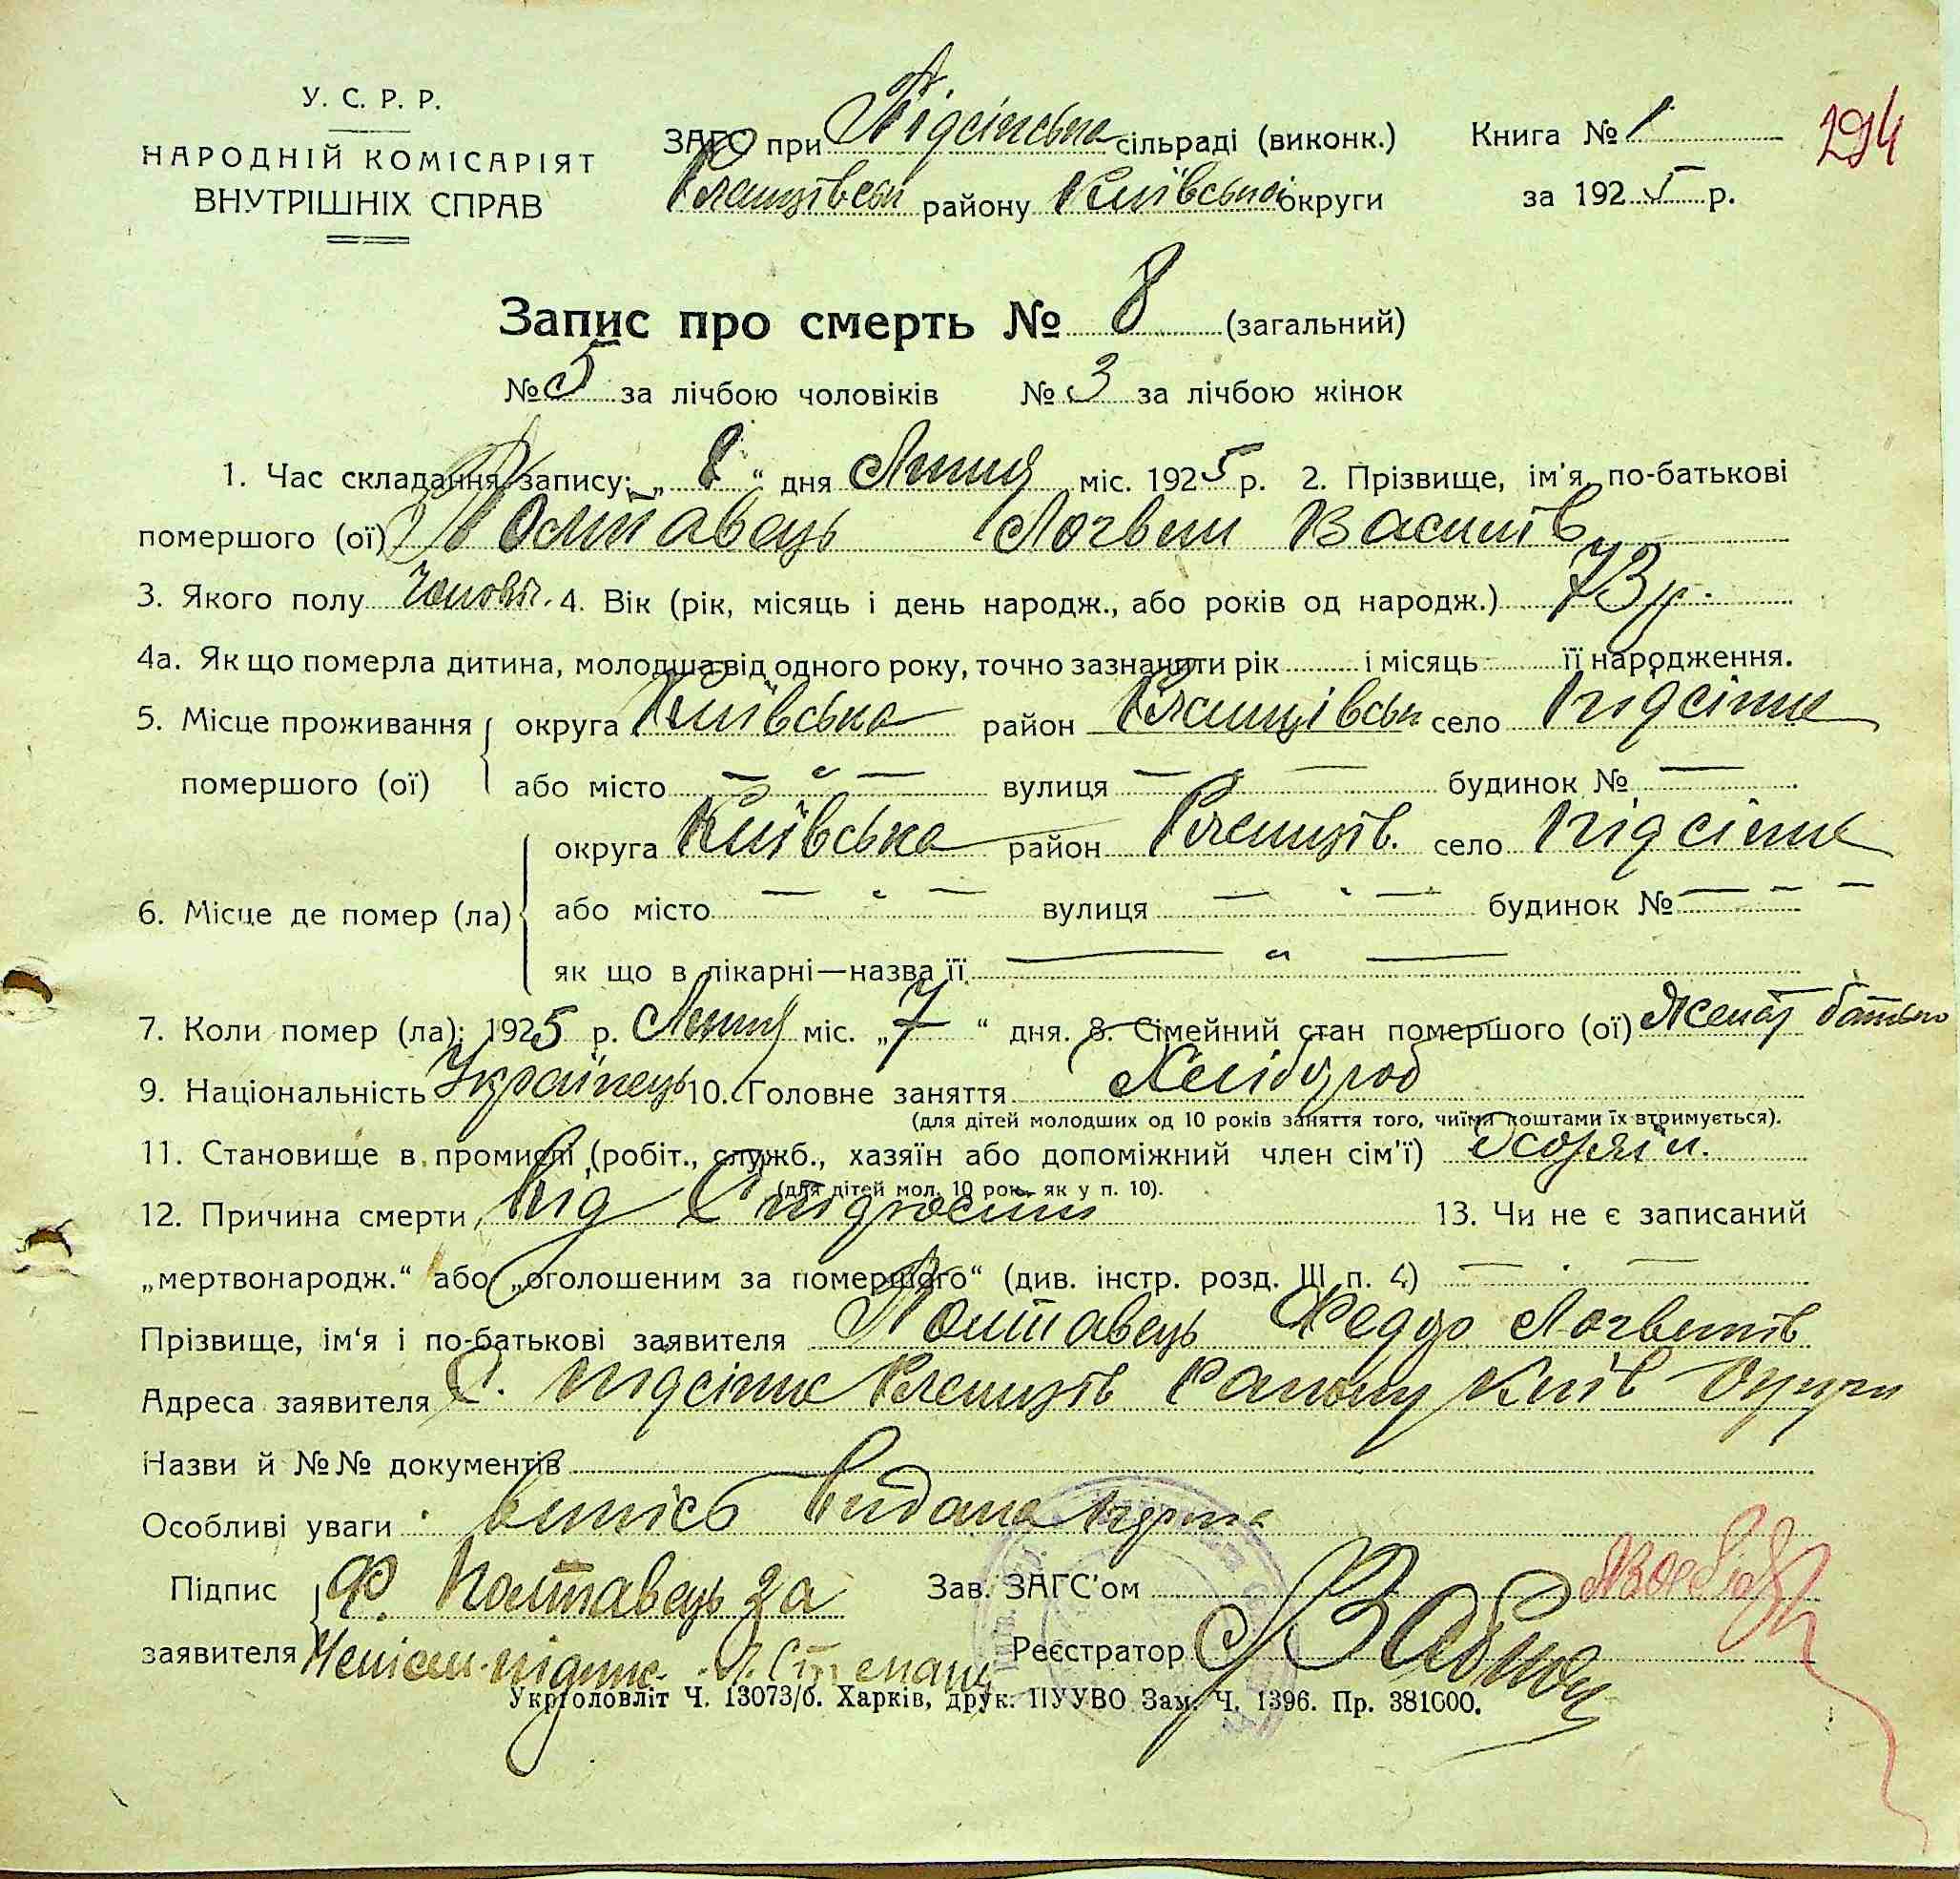 У. С. Р. Р.
НАРОДНІЙ КОМІСАРІЯТ
ВНУТРІШНІХ СПРАВ
ЗАГС при Підсінська сільраді (виконк.)
району Київської округи
Книга № 1
за 1925 р.
294
Запис про смерть № 8 (загальний)
№ 5 за лічбою чоловіків № 3 за лічбою жінок
1. Час складання запису: „ 8 “ дня Липня міс. 1925 р. 2. Прізвище, ім'я, по-батькові
помершого (ої) Полтавець Логвин Василів
3. Якого полу Чоловіч. 4. Вік (рік, місяць і день народж., або років од народж.) 73 р.
4а. Як що померла дитина, молодша від одного року, точно зазначити рік і місяць її народження.
5. Місце проживання округа Київська район село Підсінне
помершого (ої) або місто — „ — вулиця — „ — будинок № —
округа Київська район село Підсінне
6. Місце де помер (ла) або місто — „ — вулиця — „ — будинок № — — —
як що в лікарні—назва її — „ —
7. Коли помер (ла): 1925 р. Липня міс. „ 7 “ дня. 8. Сімейний стан помершого (ої) Женат батько
9. Національність Українець 10. Головне заняття Хлібороб
(для дітей молодших од 10 років заняття того, чиїми коштами їх втримується).
11. Становище в промислі (робіт., служб., хазяїн або допоміжний член сім'ї) Хозяїн.
(для дітей мол. 10 рок. як у п. 10).
12. Причина смерти Від 13. Чи не є записаний
„мертвонародж.“ або „оголошеним за помершого“ (див. інстр. розд. III п. 4) — . —
Прізвище, ім'я і по-батькові заявителя Полтавець Федір Логвинів
Адреса заявителя С. Підсінне Району Київ Округи
Назви й №№ документів
Особливі уваги Випісь видана
Підпис Ф. Полтавець за
Зав. ЗАГС'ом
заявителя підпис.
Реєстратор
Укрголовліт Ч. 13073/б. Харків, друк. ПУУВО Зам. Ч. 1396. Пр. 381000.